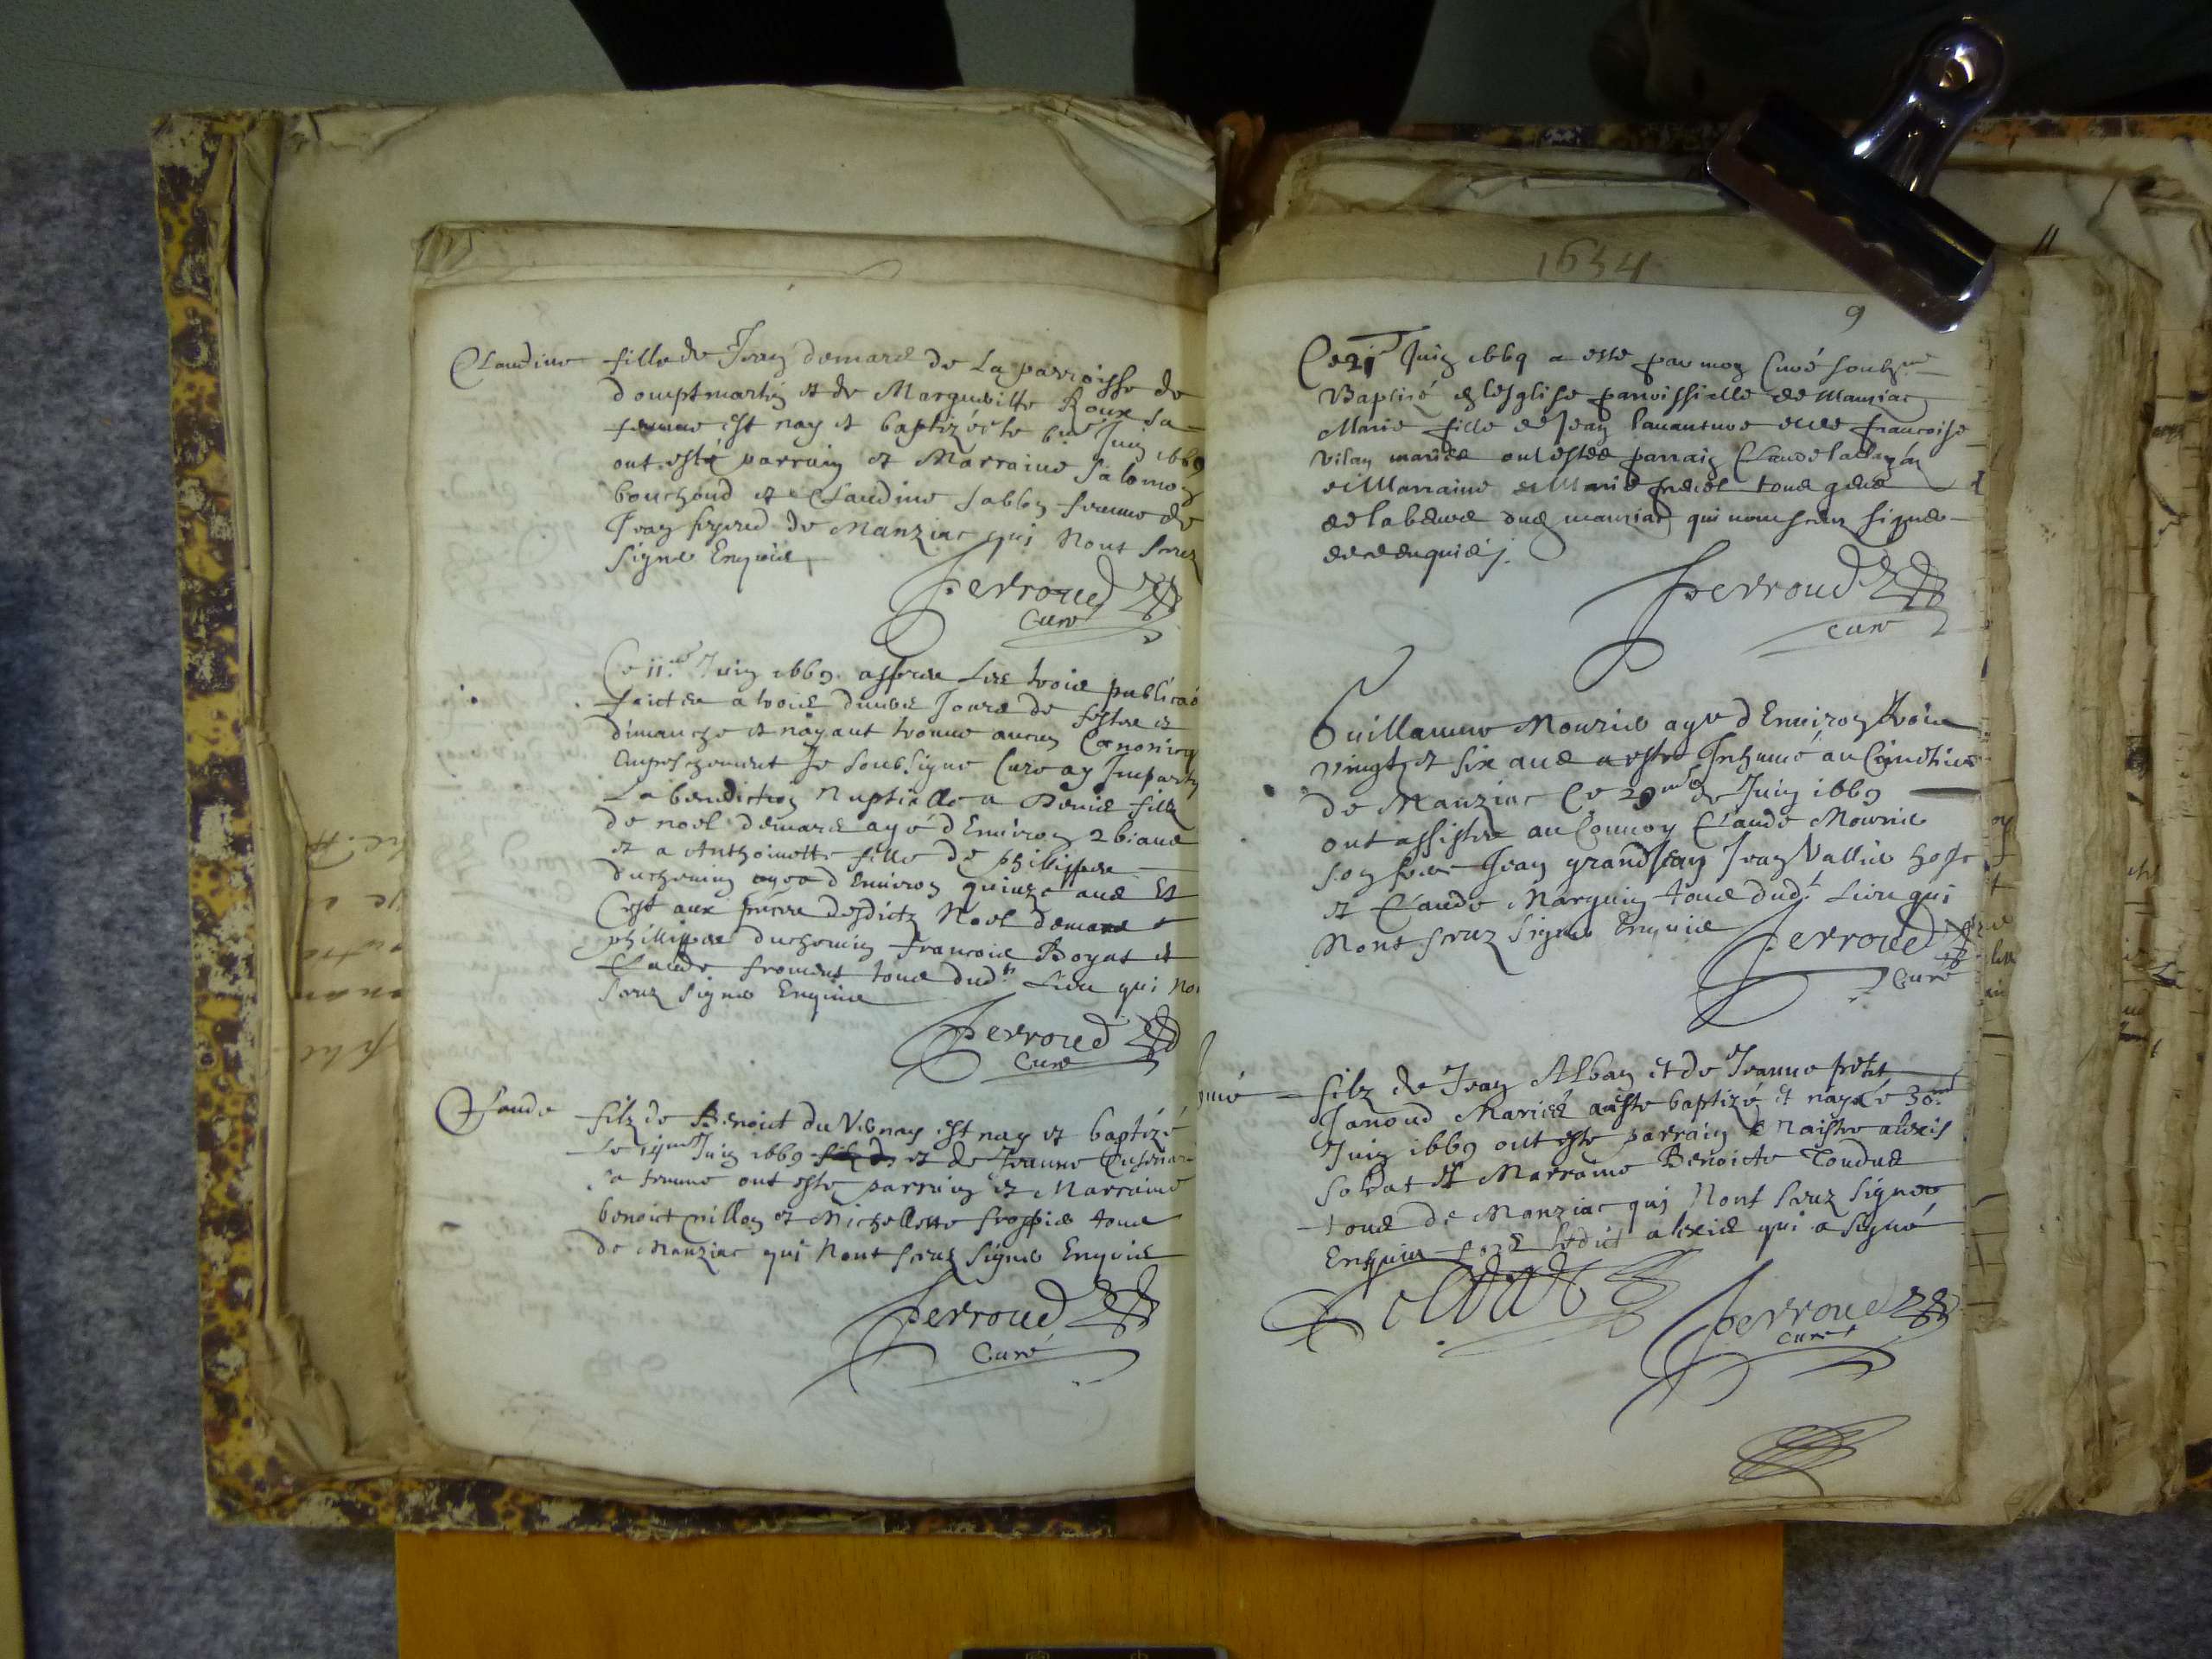 Claudine fille de Jean Demard de La parroisse de
Domptmartin et de Margueritte Roux sa
femme est nay et baptizée le 6me Juin 1669
ont esté parrain et Marraine Salomon
bouchoud et Claudine femme de
Jean de Manziac qui Nont sceuz
Signer Enquis
Perroud
Curé
Ce 11e Juin 1669 appres Les trois publicaō
faictes a trois divers Jours de festes et
dimanche et nayant trouve aucun Canonicq
Empeschement Je soubsigne Curé ay Imparty
La benediction Nuptialle a Denis filz
de noel demard agé d Environ 26 ans
et a Anthoinette fille de phillippe
duchemin agee d Environ quinze ans Et
Cest aux desdictz Noel demard et
phillippe duchemin francois Boyat et
Claude froment tous dudt Lieu qui No
sceuz signer Enquis
Perroud
Curé
Claude filz de Benoict du Vernay est nay et baptizé
Le 14me Juin 1669 et de Jeanne
sa femme ont este parrain et Marraine
benoict millon et Michellette tous
de Manziac qui Nont sceuz Signer Enquis
Perroud
Curé
1634
11
9
Ce 21e Juin 1669 a esté par moy Curé soubzne
Baptisé en lesglise parroissielle de Manziac
Marie fille de Jean lauanture et de francoise
vilan mariés ont estés parrain Claude
et Marraine Marie tous
de dud manziac qui nont sceuz signer
de ce enquis.
Perroud
Curé
Guillaume Mourier agé d Environ trois
vingtz et six ans a esté Inhumé au Cimetiere
de Manziac Ce 29me de Juin 1669
ont assisté au Convoy Claude Mourier
son frere Jean grandJean Jean Vallier hoste
et Claude Marguin tous dudt Lieu qui
Nont sceuz signer Enquis
Perroud
Curé
filz de Jean Alban et de Jeanne petit
Janoud Mariés a esté baptizé et nay Le 30me
Juin 1669 ont este parrain Maistre alexis
Soldat et Marraine Benoicte Toudus
tous de Manziac qui Nont sceuz signer
Enquis ledict alexis qui a signé
Soldat
Perroud
Curé